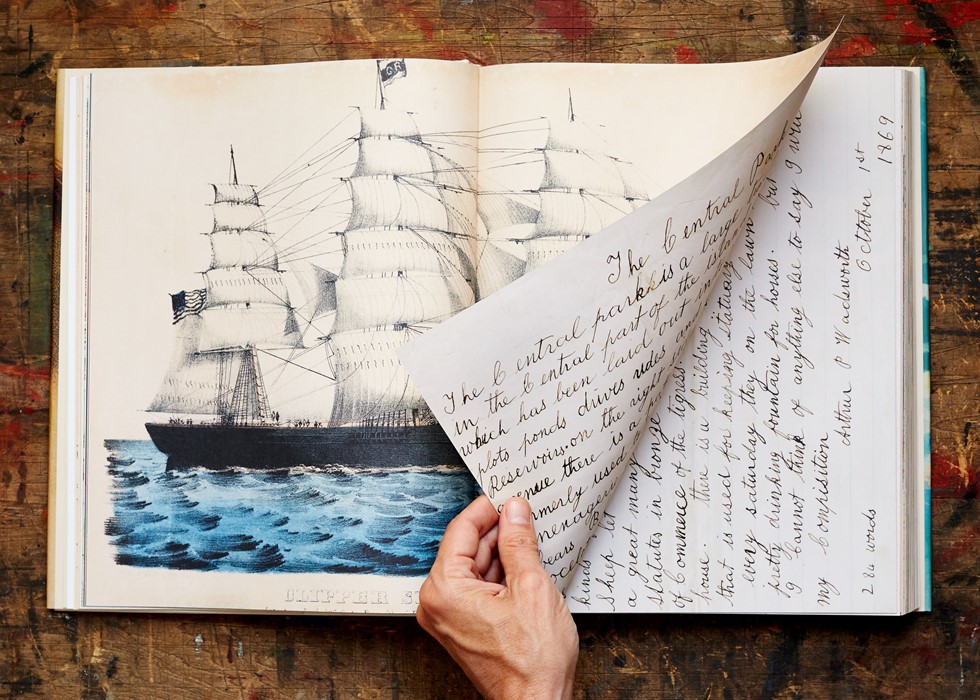 CLIPPER S
The Central Par
The Central park is a large
in the Central part of the isla
which has been laid out in
plots ponds drives rides and
Reservoirs. on the right
avenue there is a
rmerly used
menager
bears B
kinds
sheep
a great many
statues in bronze
of Commerce of the tigress
house. there is a building
that is used for keeping statuary
every saturday they on the lawn
drinking fountain for horses. but
I cannot think of anything else to say I
my Conpisition
Arthur P Wadsworth
October 1st
1869
284 words